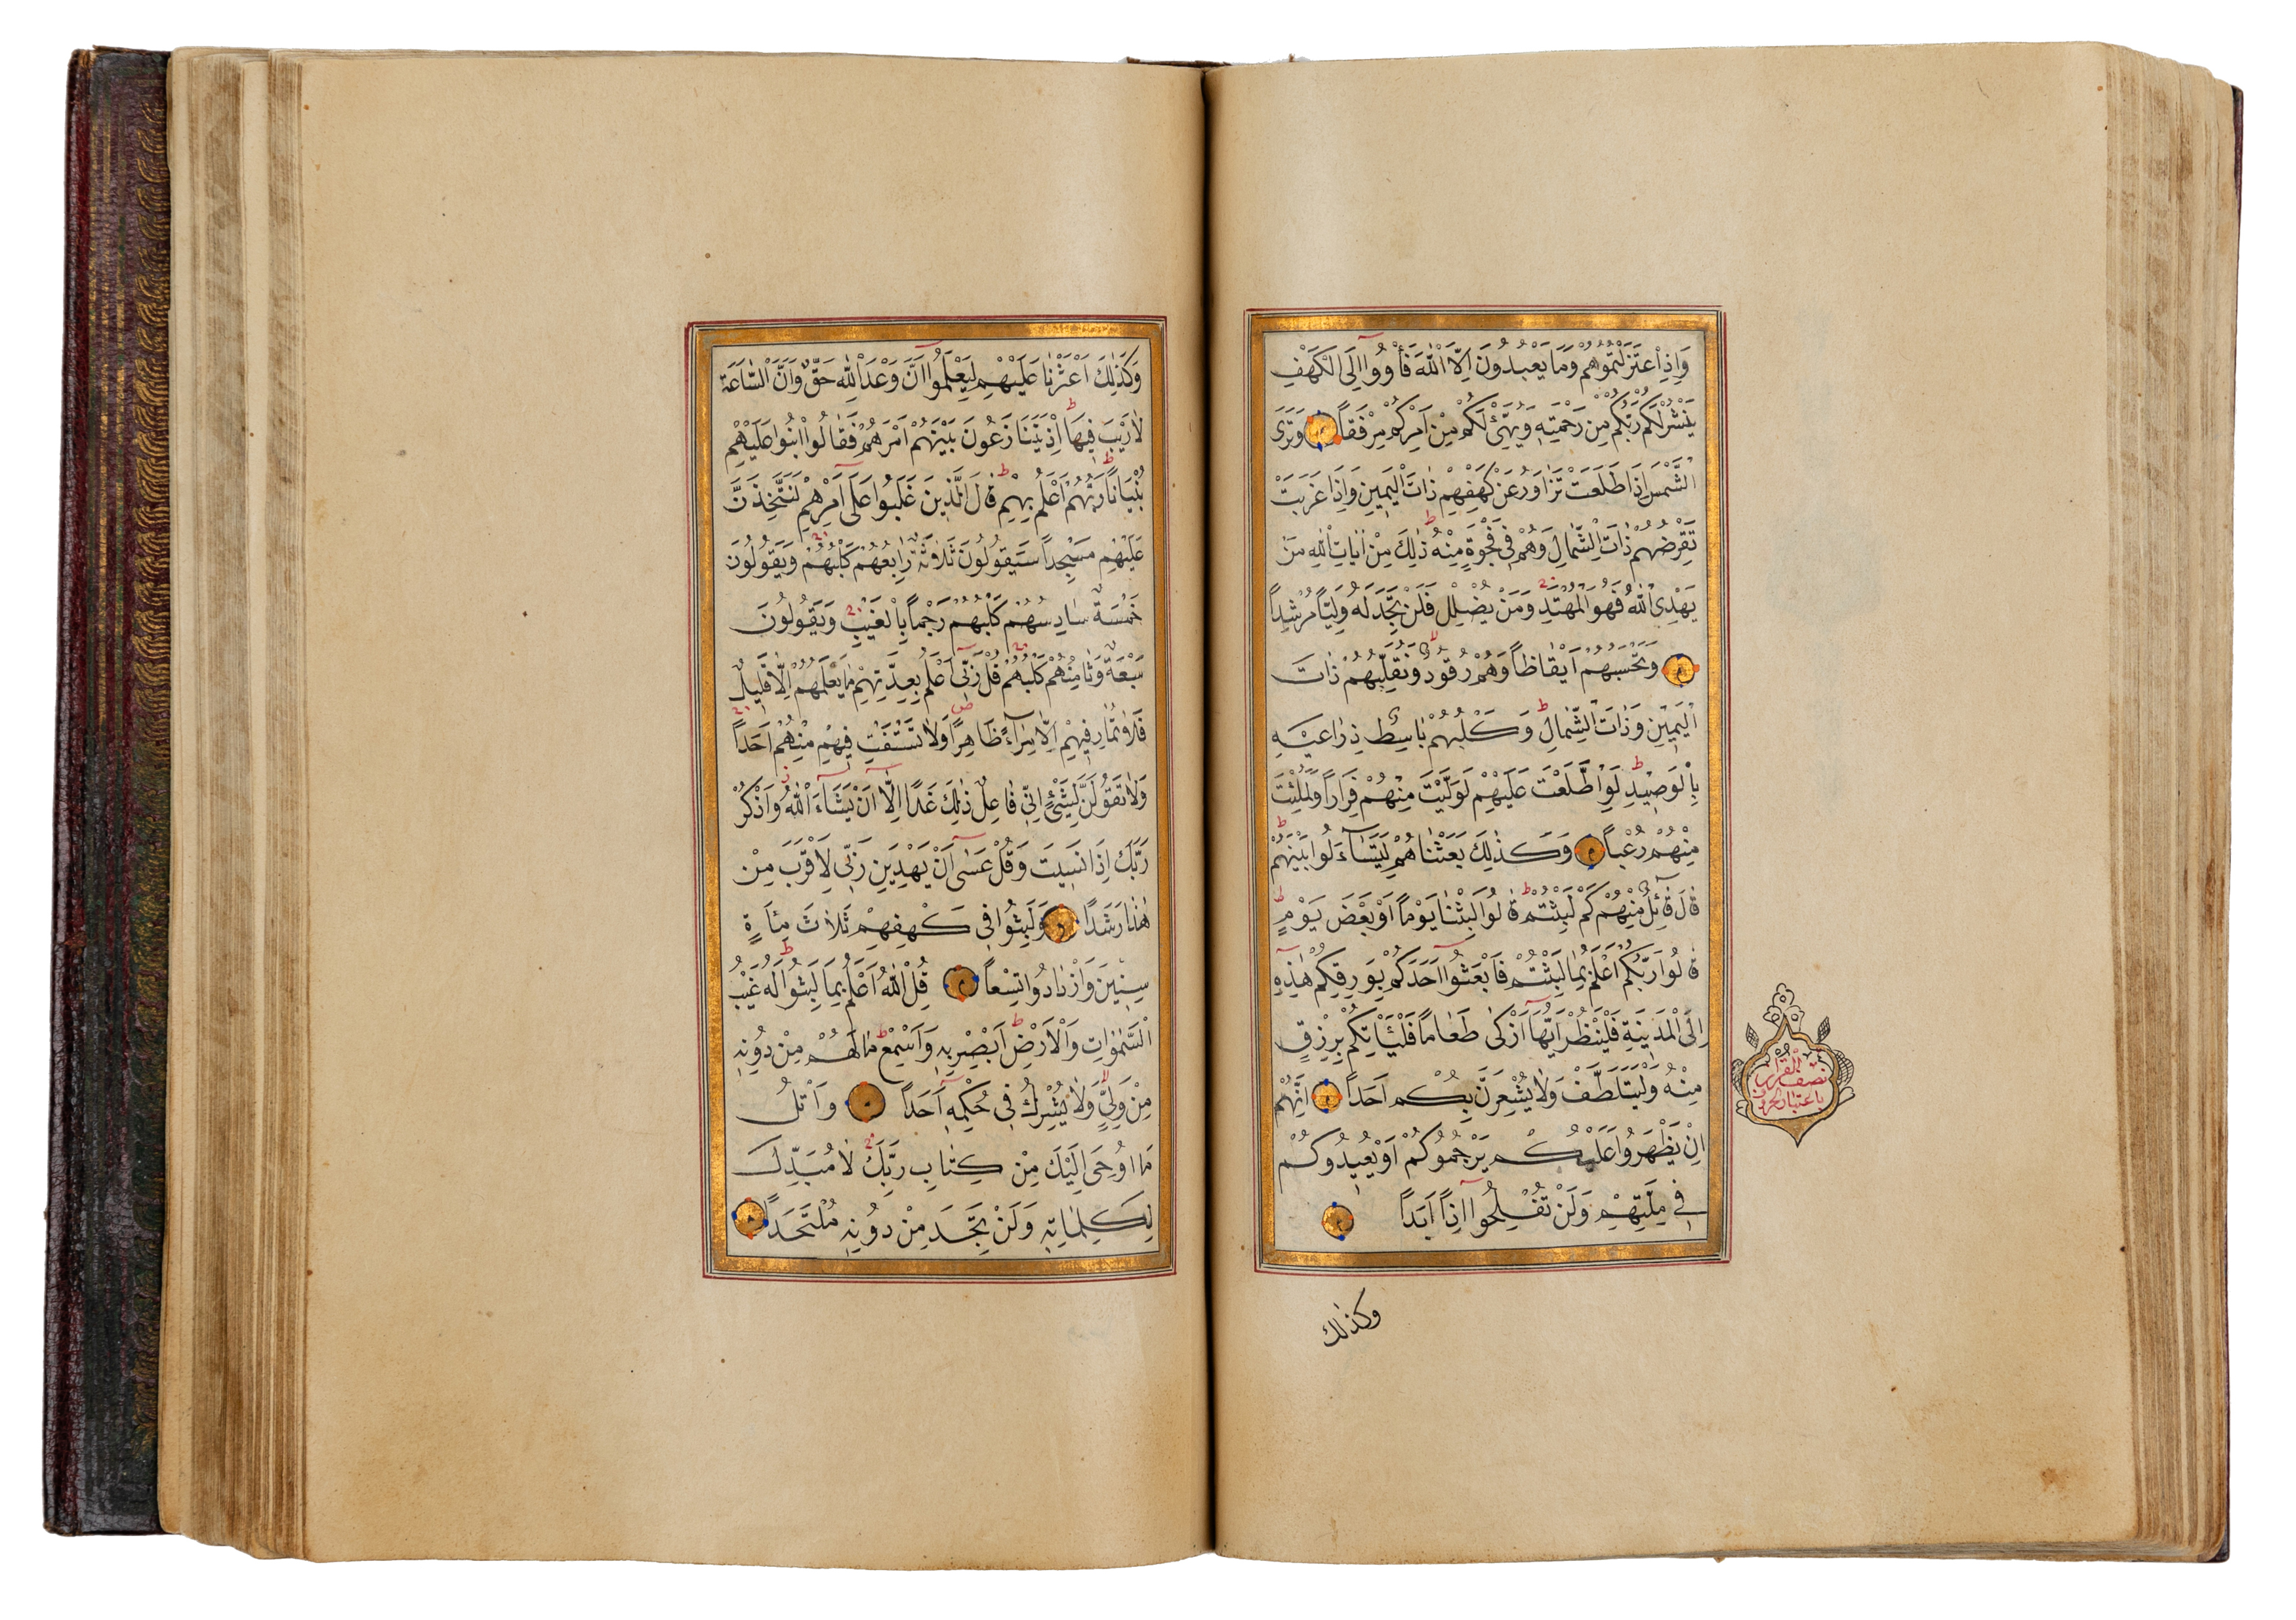 وَاِذِ اعْتَزَلْتُمُوهُمْ وَمَا يَعْبُدُونَ اِلَّا اللّٰهَ فَأْوُوا اِلَى الْكَهْفِ
يَنْشُرْ لَكُمْ رَبُّكُمْ مِنْ رَحْمَتِهِ وَيُهَيِّئْ لَكُمْ مِنْ اَمْرِكُمْ مِرْفَقاً وَتَرَى
الشَّمْسَ اِذَا طَلَعَتْ تَزَاوَرُ عَنْ كَهْفِهِمْ ذَاتَ الْيَمِينِ وَاِذَا غَرَبَتْ
تَقْرِضُهُمْ ذَاتَ الشِّمَالِ وَهُمْ فِي فَجْوَةٍ مِنْهُ ذٰلِكَ مِنْ اٰيَاتِ اللّٰهِ مَنْ
يَهْدِي اللّٰهُ فَهُوَ الْمُهْتَدِ وَمَنْ يُضْلِلْ فَلَنْ تَجِدَ لَهُ وَلِيًّا مُرْشِداً
وَتَحْسَبُهُمْ اَيْقَاظاً وَهُمْ رُقُودٌ وَنُقَلِّبُهُمْ ذَاتَ
الْيَمِينِ وَذَاتَ الشِّمَالِ وَكَلْبُهُمْ بَاسِطٌ ذِرَاعَيْهِ
بِالْوَصِيدِ لَوِ اطَّلَعْتَ عَلَيْهِمْ لَوَلَّيْتَ مِنْهُمْ فِرَاراً وَلَمُلِئْتَ
مِنْهُمْ رُعْباً وَكَذٰلِكَ بَعَثْنَاهُمْ لِيَتَسَاءَلُوا بَيْنَهُمْ
قَالَ قَائِلٌ مِنْهُمْ كَمْ لَبِثْتُمْ قَالُوا لَبِثْنَا يَوْماً اَوْ بَعْضَ يَوْمٍ
قَالُوا رَبُّكُمْ اَعْلَمُ بِمَا لَبِثْتُمْ فَابْعَثُوا اَحَدَكُمْ بِوَرِقِكُمْ هٰذِهِ
اِلَى الْمَدِينَةِ فَلْيَنْظُرْ اَيُّهَا اَزْكٰى طَعَاماً فَلْيَأْتِكُمْ بِرِزْقٍ
مِنْهُ وَلْيَتَلَطَّفْ وَلَا يُشْعِرَنَّ بِكُمْ اَحَداً اِنَّهُمْ
اِنْ يَظْهَرُوا عَلَيْكُمْ يَرْجُمُوكُمْ اَوْ يُعِيدُوكُمْ
فِي مِلَّتِهِمْ وَلَنْ تُفْلِحُوا اِذاً اَبَداً
وكذلك
نصف القرآن
باعتبار الحروف
وَكَذٰلِكَ اَعْثَرْنَا عَلَيْهِمْ لِيَعْلَمُوا اَنَّ وَعْدَ اللّٰهِ حَقٌّ وَاَنَّ السَّاعَةَ
لَا رَيْبَ فِيهَا اِذْ يَتَنَازَعُونَ بَيْنَهُمْ اَمْرَهُمْ فَقَالُوا ابْنُوا عَلَيْهِمْ
بُنْيَاناً رَبُّهُمْ اَعْلَمُ بِهِمْ قَالَ الَّذِينَ غَلَبُوا عَلٰى اَمْرِهِمْ لَنَتَّخِذَنَّ
عَلَيْهِمْ مَسْجِداً سَيَقُولُونَ ثَلَاثَةٌ رَابِعُهُمْ كَلْبُهُمْ وَيَقُولُونَ
خَمْسَةٌ سَادِسُهُمْ كَلْبُهُمْ رَجْماً بِالْغَيْبِ وَيَقُولُونَ
سَبْعَةٌ وَثَامِنُهُمْ كَلْبُهُمْ قُلْ رَبِّي اَعْلَمُ بِعِدَّتِهِمْ مَا يَعْلَمُهُمْ اِلَّا قَلِيلٌ
فَلَا تُمَارِ فِيهِمْ اِلَّا مِرَاءً ظَاهِراً وَلَا تَسْتَفْتِ فِيهِمْ مِنْهُمْ اَحَداً
وَلَا تَقُولَنَّ لِشَيْءٍ اِنِّي فَاعِلٌ ذٰلِكَ غَداً اِلَّا اَنْ يَشَاءَ اللّٰهُ وَاذْكُرْ
رَبَّكَ اِذَا نَسِيتَ وَقُلْ عَسٰى اَنْ يَهْدِيَنِ رَبِّي لِاَقْرَبَ مِنْ
هٰذَا رَشَداً وَلَبِثُوا فِي كَهْفِهِمْ ثَلَاثَ مِائَةٍ
سِنِينَ وَازْدَادُوا تِسْعاً قُلِ اللّٰهُ اَعْلَمُ بِمَا لَبِثُوا لَهُ غَيْبُ
السَّمٰوَاتِ وَالْاَرْضِ اَبْصِرْ بِهِ وَاَسْمِعْ مَا لَهُمْ مِنْ دُونِهِ
مِنْ وَلِيٍّ وَلَا يُشْرِكُ فِي حُكْمِهِ اَحَداً وَاتْلُ
مَا اُوحِيَ اِلَيْكَ مِنْ كِتَابِ رَبِّكَ لَا مُبَدِّلَ
لِكَلِمَاتِهِ وَلَنْ تَجِدَ مِنْ دُونِهِ مُلْتَحَداً